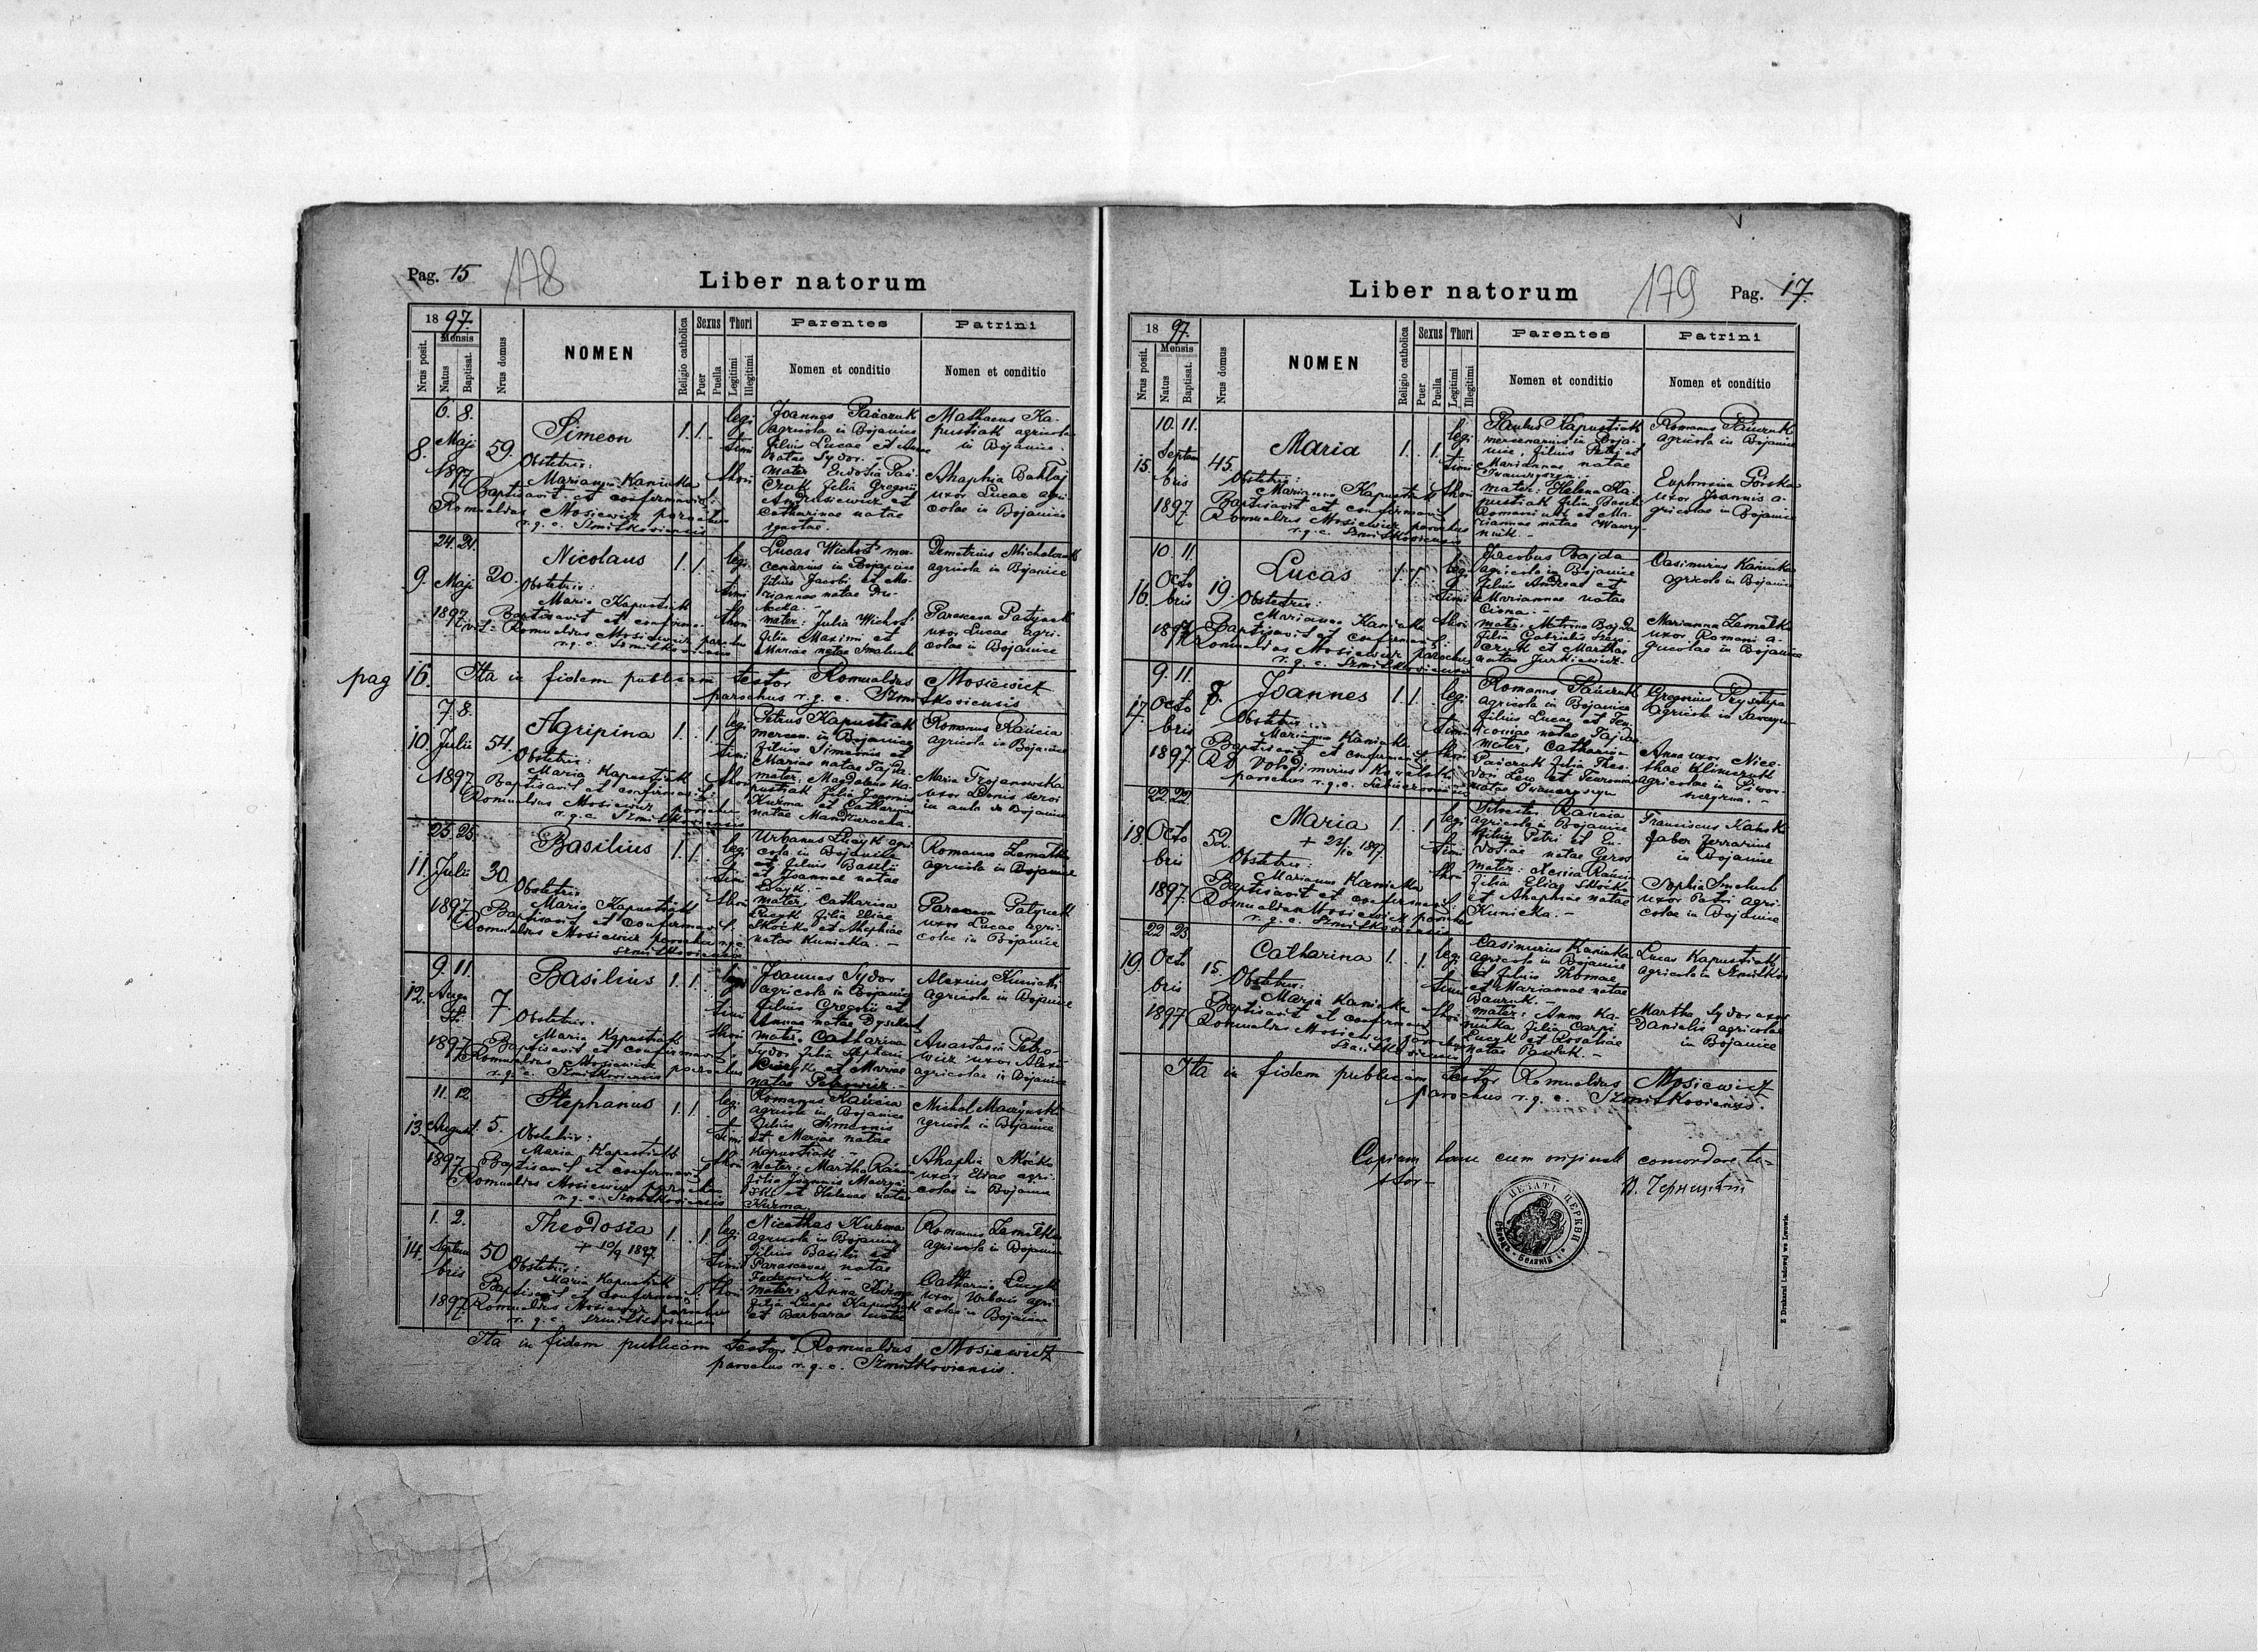 Pag. 15
178
Liber natorum
1897.
Mensis
Nrus posit.
Natus
Baptisat.
Nrus domus
NOMEN
Religio catholica
Sexus
Puer
Puella
Thori
Legitimi
Illegitimi
Parentes
Nomen et conditio
Patrini
Nomen et conditio
8.
6. 8.
Maji
1897
59.
Simeon
Obstetrix:
Marianna Kaniuka
Baptisavit et confirmavit:
Romualdus Mosiewicz parochus
r. g. c. Szmitkoviensis
1. 1.
legi
timi
thori
Joannes Pańczuk
agricola in Bojanice
filius Lucae et Annae
natae Sydor. -
mater Eudosia Pań-
czuk filia Gregorii
Andrusiewicz et
Catharinae natae
ignotae.
Mathaeus Ka-
pustiak agricola
in Bojanice.
Ahaphia Bahlaj
uxor Lucae agri-
colae in Bojanice
9.
24. 24.
Maji
1897
20.
Nicolaus
Obstetrix:
Maria Kapustiak
Baptisavit et confirma-
vit: Romualdus Mosiewicz parochus
r. g. c. Szmitkoviensis
1. 1.
legi
timi
thori
Lucas Wichot mer-
cenarius in Bojanice
filius Jacobi et Ma-
riannae natae
mater: Julia Wichot
filia Maximi et
Mariae natae Smaluch
Demetrius Micholczuk
agricola in Bojanice
Parascena Patynek
uxor Lucae agri-
colae in Bojanice
pag 16.
Ita in fidem publicam testor Romualdus Mosiewicz
parochus r. g. c. Szmitkoviensis
10.
7. 8.
Julii
1897
54.
Agripina
Obstetrix:
Maria Kapustiak
Baptisavit et confirmavit:
Romualdus Mosiewicz parochus
r. g. c. Szmitkoviensis
1. 1.
legi
timi
thori
Petrus Kapustiak
mercen. in Bojanice
filius Simeonis et
Mariae natae Pajda.
mater: Magdalena Ka-
pustiak filia Joannis
Kuzma et Catharinae
natae
Romanus Rańcia
agricola in Bojanice
Maria Trojanowska
uxor Leonis servi
in aula de Bojanice
11.
25. 25.
Julii
1897
30.
Basilius
Obstetrix
Maria Kapustiak
Baptisavit et confirmavit.
Romualdus Mosiewicz parochus r.g.c.
Szmitkoviensis
1. 1.
legi
timi
thori
Urbanus Łucyk agri
cola in Bojanice
et filius Basilii
et Joannae natae
mater: Catharina
Łucyk filia Eliae
Skočko et Ahaphiae
natae Kunicka. -
Romanus Zematka
agricola in Bojanice
Parascena Patynek
uxor Lucae agri-
colae in Bojanice
12.
9. 11.
Augu
sti
1897
7.
Basilius
Obstetrix.
Maria Kapustiak
Baptisavit et confirmavit:
Romualdus Mosiewicz parochus
r. g. c. Szmitkoviensis
1. 1.
legi
timi
thori
Joannes Sydor
agricola in Bojanice
filius Gregorii et
Annae natae
mater. Catharina
Sydor filia Stephani
et Mariae
natae Petrowicz. -
Alexius Kunicki
agricola in Bojanice
Anastasia Petro-
wicz uxor Alexii
agricolae in Bojanice
13.
11. 12
August.
1897
5.
Stephanus
Obstetrix:
Maria Kapustiak
Baptisavit et confirmavit
Romualdus Mosiewicz parochus
r. g. c. Szmitkoviensis
1. 1.
legi
timi
thori
Romanus Rańcia
agricola in Bojanice
filius Simeonis
et Mariae natae
Kapustiak -
mater: Martha Rańcia
filia Joannis
et Helenae natae
Kuzma.
Michal
agricola in Bojanice
Ahaphia Skočko
uxor Eliae agri-
colae in Bojanice
14.
1. 2.
Septem
bris
1897
50
Theodosia
+ 10/9 1897.
Obstetrix:
Maria Kapustiak
Baptisavit et confirmavit
Romualdus Mosiewicz parochus
r. g. c. Szmitkoviensis
1. 1.
legi
timi
thori
Nicethas Kuzma
agricola in Bojanice
filius Basilii et
Parascevae natae
mater: Anna Kuzma
filia Lucae Kapustiak
et Barbarae natae
Romanus Zematka
agricola in Bojanice
Catharina Łucyk
uxor Urbani agri-
colae in Bojanice
Ita in fidem publicam testor Romualdus Mosiewicz
parochus r. g. c. Szmitkoviensis.
Liber natorum
179
Pag. 17.
1897.
Mensis
Nrus posit.
Natus
Baptisat.
Nrus domus
NOMEN
Religio catholica
Sexus
Puer
Puella
Thori
Legitimi
Illegitimi
Parentes
Nomen et conditio
Patrini
Nomen et conditio
15.
10. 11.
Septem
bris
1897
45.
Maria
Obstetrix:
Marianna Kapustiak
Baptisavit et confirmavit
Romualdus Mosiewicz parochus
r. g. c. Szmitkoviensis
1. 1.
legi
timi
thori
Paulus Kapustiak
mercenarius in Boja-
nice, filius Petri et
Mariannae natae
mater: Helena Ka-
pustiak filia Basilii
et Ma-
riannae natae Wawry-
niuk. -
Romanus Pańczuk
agricola in Bojanice
Euphrosina Górska
uxor Joannis a-
gricolae in Bojanice
16.
10. 11.
Octo
bris
1897
19
Lucas
Obstetrix:
Marianna Kaniuka
Baptisavit et confirmavit:
Romualdus Mosiewicz parochus
r. g. c. Szmitkoviensis
1. 1.
legi
timi
thori
Jacobus Bajda
agricola in Bojanice
filius Andreae et
Mariannae natae
mater: Matrona Bajda
filia Gabrielis
et Marthae
natae Jurkiewicz.
Casimirus Kaniuka
agricola in Bojanice
Marianna Zematka
uxor Romani a-
gricolae in Bojanice
17.
9. 11.
Octo
bris
1897
8.
Joannes
Obstetrix
Marianna Kaniuka
Baptisavit et confirmavit:
parochus r. g. c.
1. 1.
legi
timi
thori
Romanus Pańczuk
agricola in Bojanice
filius Lucae et
natae Pajda
mater: Catharina
Pańczuk filia Theo-
dori Lew et
natae
Gregorius Prystupa
agricola in
Anna uxor Nice-
thae Klimczuk
agricolae in
18.
22. 22.
Octo
bris
1897.
52.
Maria
+ 23/10 1897
Obstetrix:
Marianna Kaniuka
Baptisavit et confirmavit:
Romualdus Mosiewicz parochus
r. g. c. Szmitkoviensis
1. 1
legi
timi
thori
Silvester Rańcia
agricola in Bojanice
filius Petri et Eu-
dosiae natae
mater: Xenia Rańcia
filia Eliae Skočko
et Ahaphiae natae
Kunicka. -
Franciscus
faber ferrarius
in Bojanice
Sophia Smoluch
uxor Petri agri-
colae in Bojanice
19.
22 23.
Octo
bris
1897
15.
Catharina
Obstetrix:
Maria Kaniuka
Baptisavit et confirmavit
Romualdus Mosiewicz parochus
Szmitkoviensis
1. 1
legi
timi
thori
Casimirus Kaniuka
agricola in Bojanice
et filius Thomae
et Mariannae natae
mater: Anna Ka-
niuka filia Carpi
Łucyk et Rosaliae
natae Pawluk. -
Lucas Kapustiak
agricola in Szmitków
Martha Sydor uxor
Danielis agricolae
in Bojanice
Ita in fidem publicam testor Romualdus Mosiewicz
parochus r. g. c. Szmitkoviensis.
Copiam hanc cum originali concordare te-
stor -
ПЕЧАТЬ ЦЕРКВИ
Z Drukarni Ludowej we Lwowie.